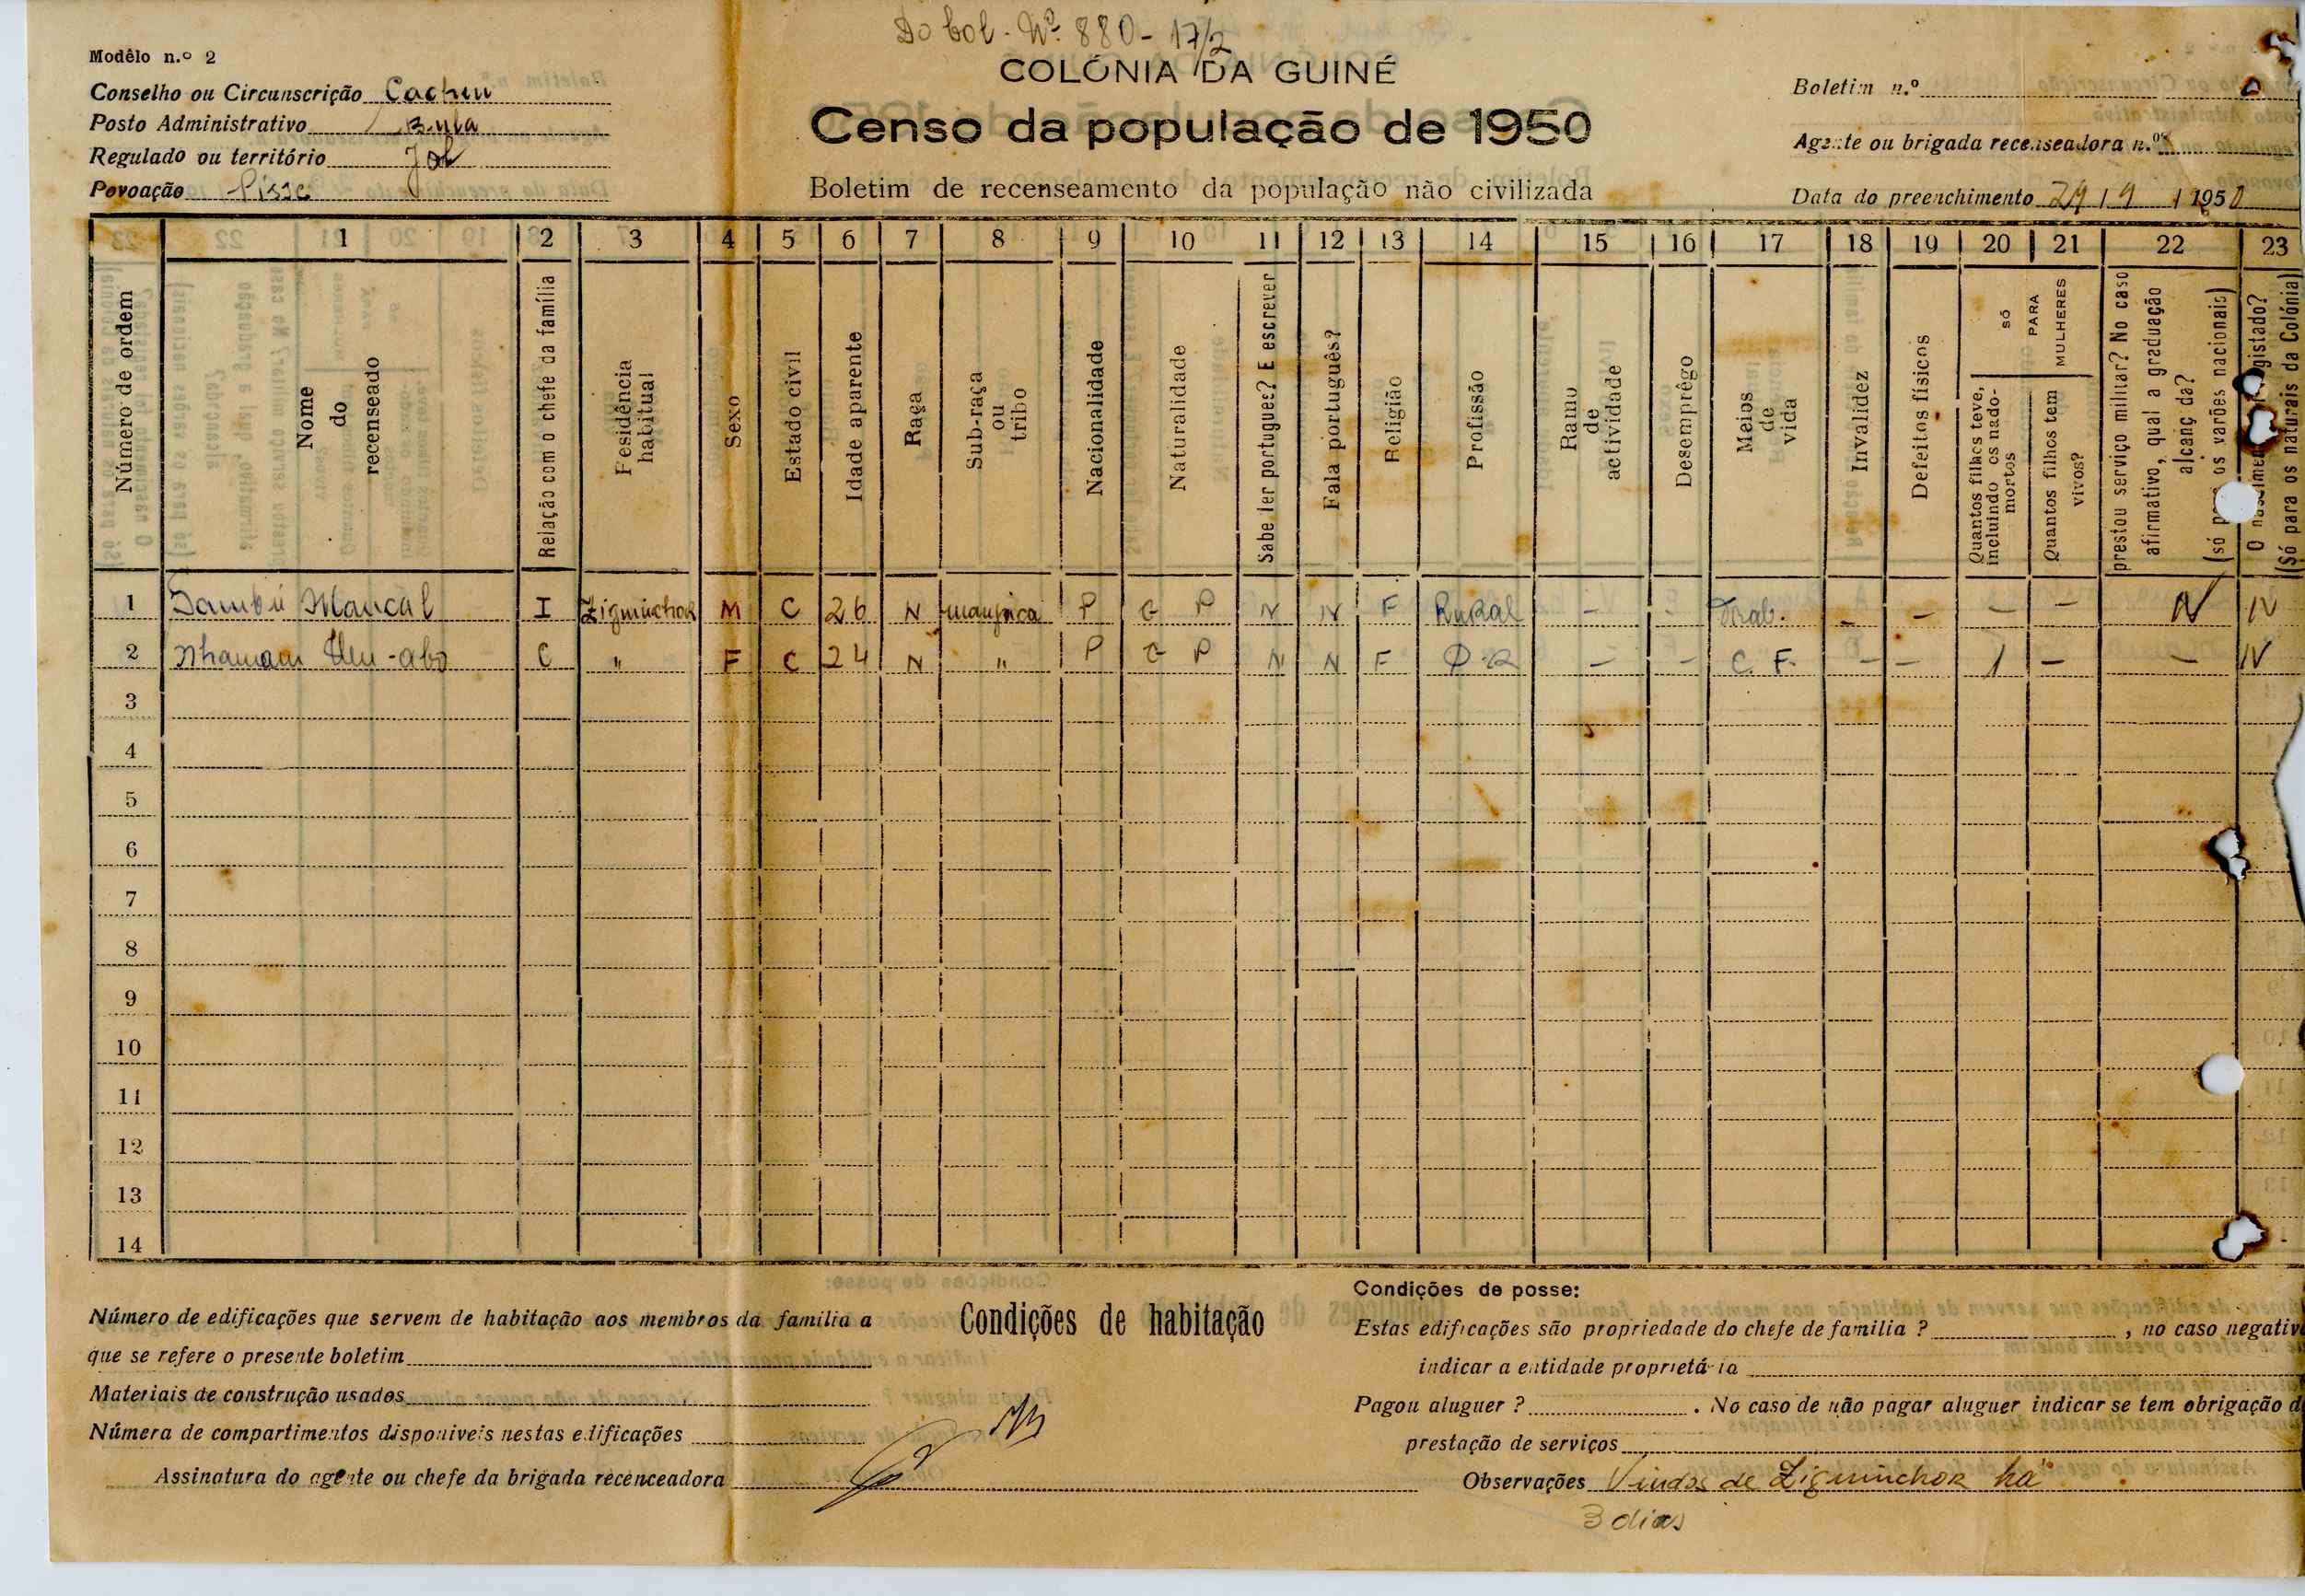 Do bol. Nº 880 - 17/2
Modêlo n.º 2
COLÓNIA DA GUINÉ
Censo da população de 1950
Boletim de recenseamento da população não civilizada
Conselho ou Circunscrição Cacheu
Posto Administrativo Bula
Regulado ou território Jol
Povoação
Boletim n.º
Agente ou brigada recenseadora n.º
Data do preenchimento 29 / 9 / 1950
1 2 3 4 5 6 7 8 9 10 11 12 13 14 15 16 17 18 19 20 21 22 23
Número de ordem
Nome do recenseado
Relação com o chefe da família
Residência habitual
Sexo
Estado civil
Idade aparente
Raça
Sub-raça ou tribo
Nacionalidade
Naturalidade
Sabe ler português? E escrever
Fala português?
Religião
Profissão
Ramo de actividade
Desemprêgo
Meios de vida
Invalidez
Defeitos físicos
SÓ PARA MULHERES
Quantos filhos teve, incluindo os nado-mortos
Quantos filhos tem vivos?
prestou serviço militar? No caso afirmativo, qual a graduação alcançada? (só para os varões nacionais)
O nascimento registado? (Só para os naturais da Colónia)
1 Mancal I Ziguinchor M C 26 N P G P N N F Rural - - Trab. - - - - N N
2 C " F C 24 N " P G P N N F - - C. F. - - 1 - - N
3
4
5
6
7
8
9
10
11
12
13
14
Número de edificações que servem de habitação aos membros da familia a
que se refere o presente boletim
Materiais de construção usados
Númera de compartimentos disponiveis nestas edificações
Assinatura do agente ou chefe da brigada recenceadora
Condições de habitação
Condições de posse:
Estas edificações são propriedade do chefe de familia ? , no caso negativ
indicar a entidade proprietária
Pagou aluguer ? . No caso de não pagar aluguer indicar se tem obrigação d
prestação de serviços
Observações Vindos de Ziguinchor há
3 dias